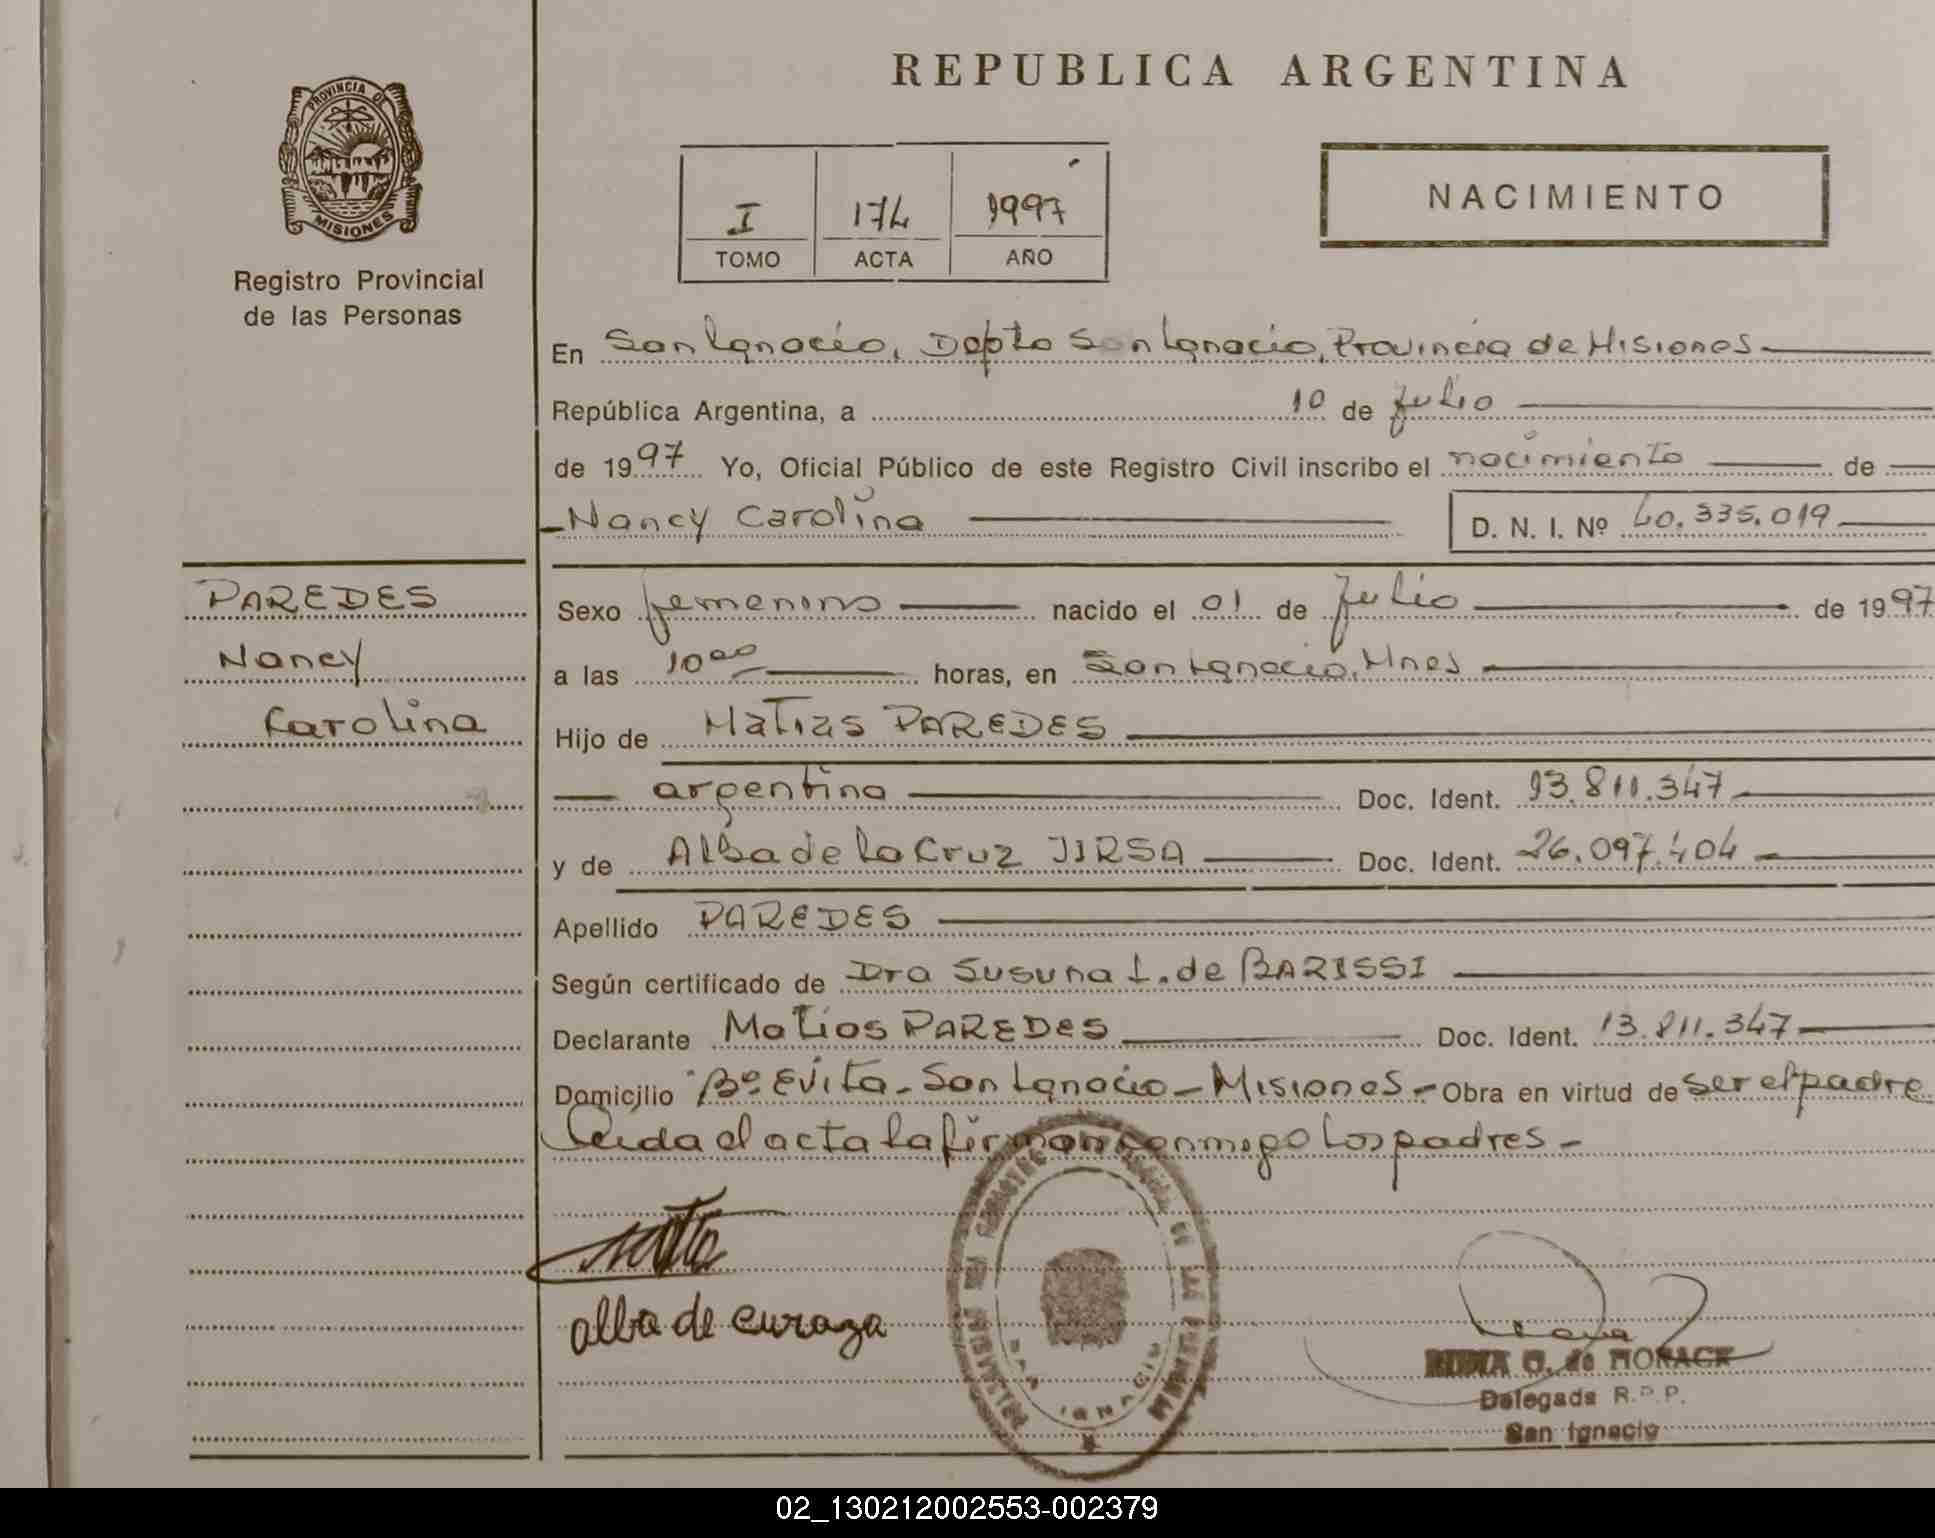 REPUBLICA ARGENTINA
PROVINCIA DE
MISIONES
Registro Provincial
de las Personas
I 174 1997
TOMO ACTA AÑO
NACIMIENTO
En San Ignacio, Dpto San Ignacio, Provincia de Misiones
República Argentina, a 10 de Julio
de 1997 Yo, Oficial Público de este Registro Civil inscribo el nacimiento de
Nancy Carolina D. N. I. Nº 40.335.019
PAREDES
Nancy
Carolina
Sexo femenino nacido el 01 de Julio de 1997
a las 10 00 horas, en San Ignacio, Mnes
Hijo de Matias PAREDES
argentina Doc. Ident. 13.811.347
y de Alba de la Cruz JIRSA Doc. Ident. 26.097.404
Apellido PAREDES
Según certificado de Dra Susuna L. de BARISSI
Declarante Matias PAREDES Doc. Ident. 13.811.347
Domicilio Bº Evita - San Ignacio - Misiones - Obra en virtud de ser el padre
Leida el acta la firman conmigo los padres -
alba de curaza
O. de HORACK
Delegada R.P.P.
San Ignacio
02_130212002553-002379